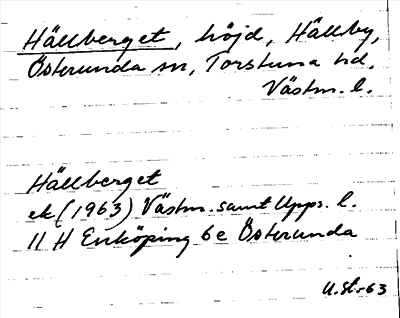 Hällberget, höjd, Hällby,
Österunda sn, Torstuna hd,
Västm. l.
Hällberget
ek (1963) Västm. samt Upps. l.
11 H Enköping 6e Österunda
U.St-63